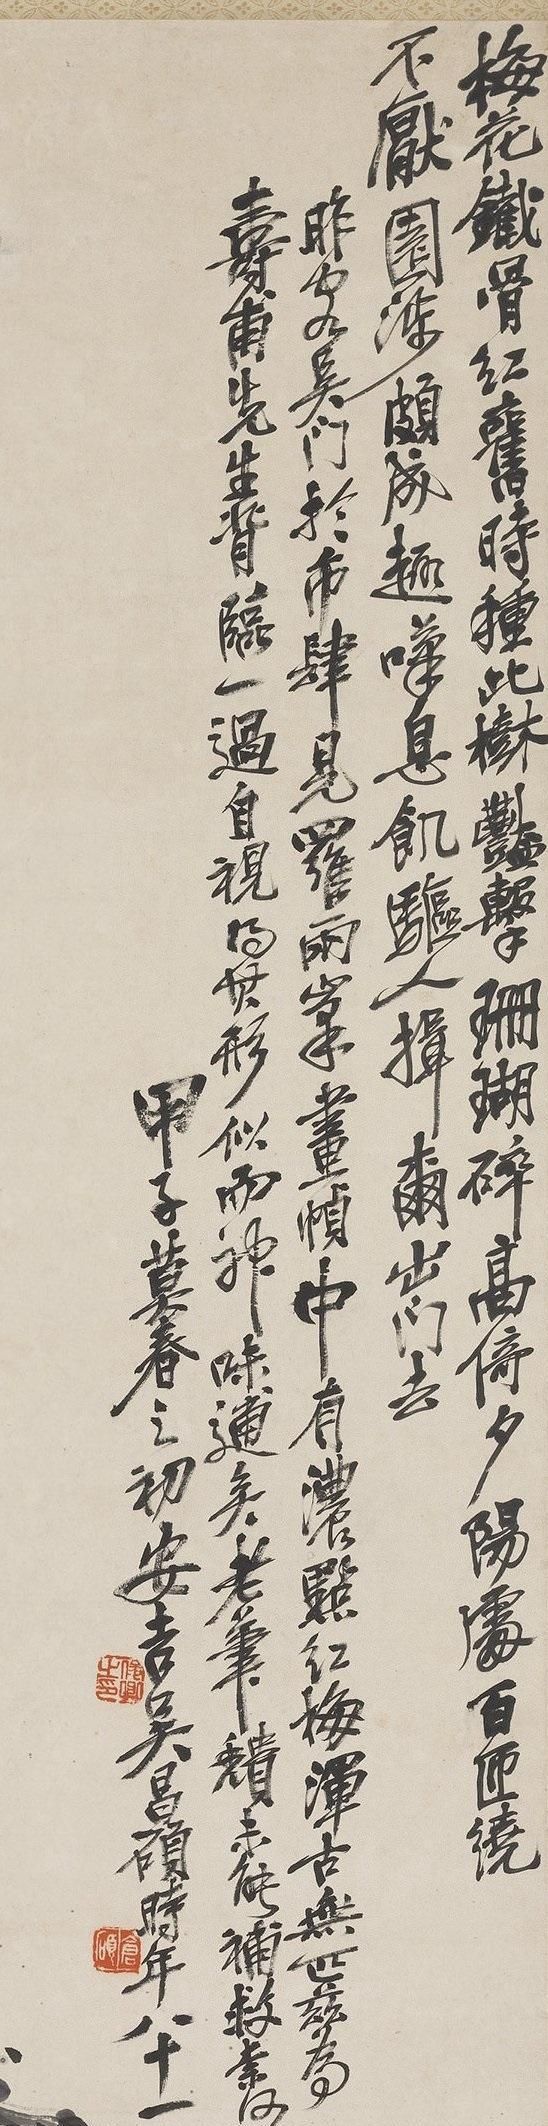 梅花鐵骨紅舊時種此樹艷擊珊瑚碎高倚夕陽處百匝繞
不厭園涉頗成趣嘆息飢驅人揖爾出門去
昨客吳門於市肆見羅兩峯畫幀中有濃點紅梅渾古無匹茲為
壽甫先生背臨一過自視得其形似而神味逋矣老筆穨未能補救奈何
甲子莫春之初安吉吳昌碩時年八十一
俊卿之印
倉碩